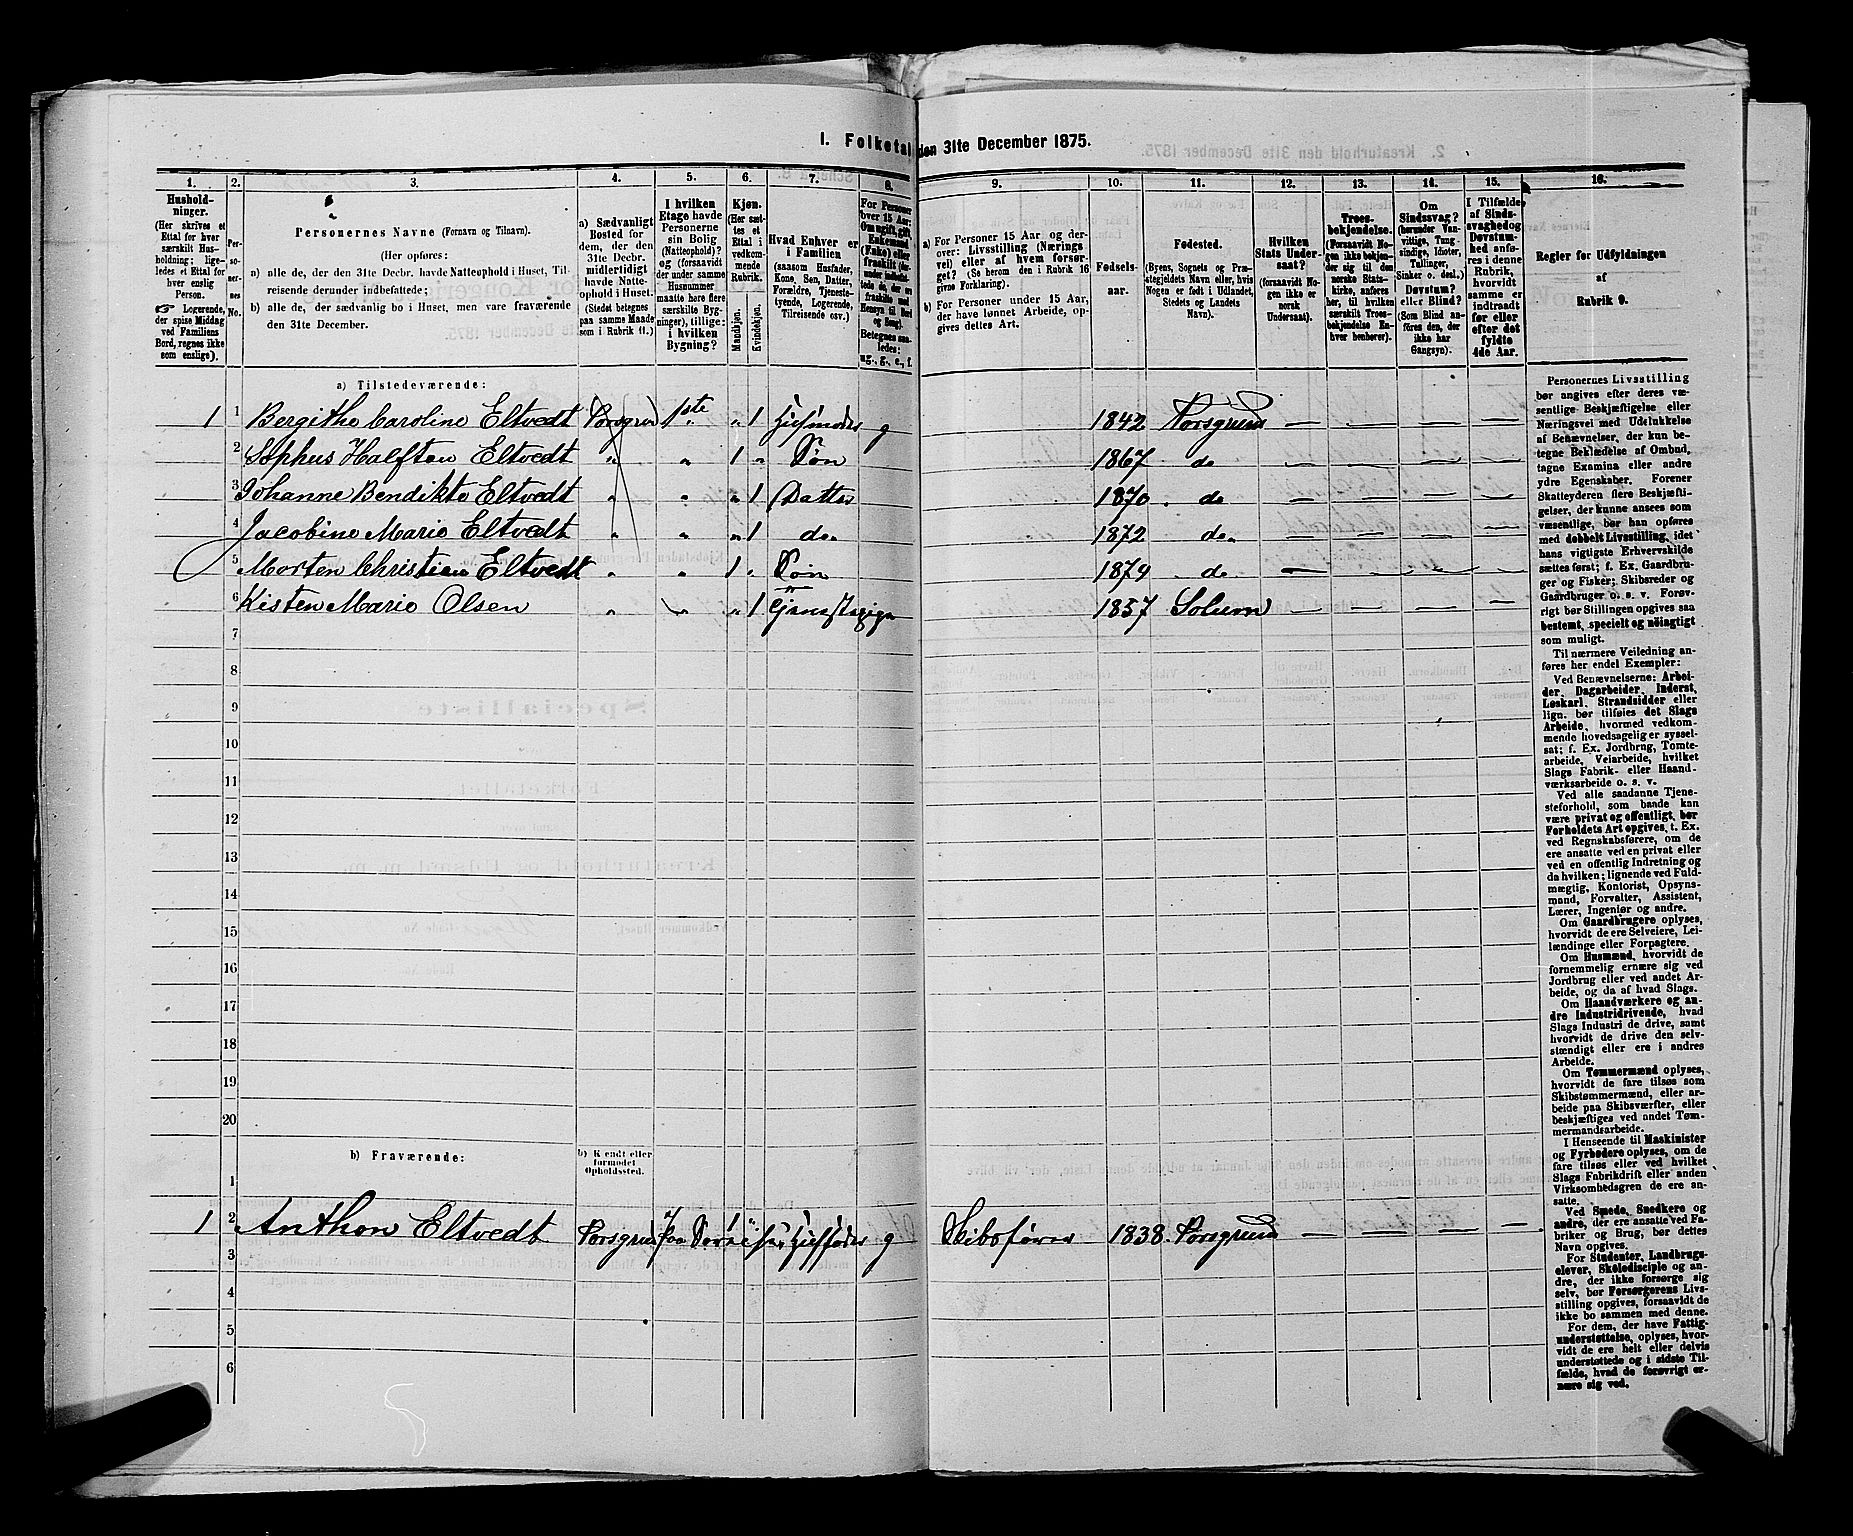 I. Folketal den 31te December 1875.
1. 2. 3. 4. 5. 6. 7. 8. 9. 10. 11. 12. 13. 14. 15. 16.
Hushold-
ninger.
(Her skrives et
Ettal for hver
særskilt Hus-
holdning; lige-
ledes et Ettal for
hver enslig
Person.
Logerende,
der spise Middag
ved Familiens
Bord, regnes ikke
som enslige).
Per-
so-
ner-
nes
No.
Personernes Navne (Fornavn og Tilnavn).
(Her opføres:
a) alle de, der den 31te Decbr. havde Natteophold i Huset, Til-
reisende derunder indbefattede;
b) alle de, der sædvanlig bo i Huset, men vare fraværende
den 31te December.
a) Sædvanligt
Bosted for
dem, der den
31te Decbr.
midlertidigt
havde Natte-
ophold i Huset.
(Stedet betegnes
paa samme Maade
som i Rubrik 11.)
I hvilken
Etage havde
Personerne
sin Bolig
(Natteophold)?
og (forsaavidt
der under samme
Husnummer
maatte høre flere
særskilte Byg-
ninger), tillige:
i hvilken
Bygning?
Kjøn.
(Her sæt-
tes et
Ettal i
vedkom-
mende
Rubrik.
Mandkjøn.
Kvindekjøn.
Hvad Enhver er
i Familien
(saasom Husfader,
Kone, Søn, Datter,
Forældre, Tjeneste-
tyende, Logerende,
Tilreisende osv.)
For Personer
over 15 Aar:
Om ugift, gift,
Enkemand
(Enke) eller
fraskilt
Betegnes saa-
ledes:
ug., g., e., f.
a) For Personer 15 Aar og der-
over: Livsstilling (Nærings-
vei) eller af hvem forsør-
get? (Se herom den i Rubrik 16
givne Forklaring).
b) For Personer under 15 Aar,
der have lønnet Arbeide, op-
gives dettes Art.
Fødsels-
aar.
Fødested.
(Byens, Sognets og Præ-
stegjeldets Navn eller, hvis
Nogen er født i Udlandet,
Stedets og Landets
Navn).
Hvilken
Stats Under-
saat?
(forsaavidt No-
gen ikke er
norsk
Undersaat).
Troes-
bekjendelse.
(Forsaavidt No-
gen ikke bekjen-
der sig til den
norske Stats-
kirke, anføres
her, til hvilken
særskilt Troes-
bekjendelse En-
hver henhører).
Om
Sindssvag?
(herunder Van-
vittige, Tung-
sindige, Idioter,
Tullinger,
Sinker o. desl.)
Døvstum?
eller Blind?
(Som Blind an-
føres den, der
ikke har
Gangsyn).
I Tilfælde
af Sinds-
svaghed og
Døvstum-
hed anfø-
res i denne
Rubrik,
hvorvidt
samme er
indtraadt
før eller
efter det
fyldte
4de Aar.
Regler for Udfyldningen
af
Rubrik 9.
a) Tilstedeværende:
1 1 Bergithe Caroline Eltvedt Porsgrund 1ste „ 1 Husmoder g 1842 Porsgrund — — — —
2 Sophus Halfton Eltvedt „ „ 1 „ Søn 1867 do — — — —
3 Johanne Bendikte Eltvedt „ „ „ 1 Datter 1870 do — — — —
4 Jacobine Marie Eltvedt „ „ „ 1 do 1872 do — — — —
5 Morten Christian Eltvedt „ „ 1 „ Søn 1874 do — — — —
6 Kisten Marie Olsen „ „ „ 1 1857 Solum — — — —
7
8
9
10
11
12
13
14
15
16
17
18
19
20
b) Fraværende:
b) Kjendt eller
formodet
Opholdssted.
1
1 2 Anthon Eltvedt Porsgrund Husfader g Skibsfører 1838 Porsgrund — — — —
3
4
5
6
Personernes Livsstilling
bør angives efter deres væ-
sentlige Beskjæftigelse eller
Næringsvei med Udelukkelse
af Benævnelser, der kun be-
tegne Beklædelse af Ombud,
tagne Examina eller andre
ydre Egenskaber. Forener
Skatteyderen flere Beskjæfti-
gelser, der kunne ansees som
væsentlige, bør han opføres
med dobbelt Livsstilling, idet
hans vigtigste Erhvervskilde
sættes først; f. Ex. Gaardbru-
ger og Fisker; Skibsreder og
Gaardbruger o. s. v. Forøv-
rigt bør Stillingen opgives saa
bestemt, specielt og nøiagtigt
som muligt.
Til nærmere Veiledning an-
føres her endel Exempler:
Ved Benævnelserne: Arbei-
der, Dagarbeider, Inderst,
Løskarl, Strandsidder eller
lign. bør tilføies det Slags
Arbeide, hvormed vedkom-
mende hovedsagelig er syssel-
sat; f. Ex. Jordbrug, Tomte-
arbeide, Veiarbeide, hvilket
Slags Fabrik- eller Haand-
værksarbeide o. s. v.
Ved alle saadanne Tjene-
steforhold, som baade kan
være privat og offentligt, bør
Forholdets Art opgives, t. Ex.
ved Regnskabsførere, om de
ere ansatte ved en privat eller
ved en offentlig Indretning og
da hvilken; lignende ved Fuld-
mægtig, Kontorist, Opsyns-
mand, Forvalter, Assistent,
Lærer, Ingeniør og andre.
Om Gaardbrugere oplyses,
hvorvidt de ere Selveiere, Lei-
lændinge eller Forpagtere.
Om Husmænd, hvorvidt de
fornemmelig ernære sig ved
Jordbrug eller ved andet Ar-
beide, og da af hvad Slags.
Om Haandværkere og an-
dre Industridrivende, hvad
Slags Industri de drive, samt
hvorvidt de drive den selv-
stændigt eller ere i andres
Arbeide.
Om Tømmermænd oplyses,
hvorvidt de fare tilsøs som
Skibstømmermænd, eller ar-
beide paa Skibsværfter, eller
beskjæftiges ved andet Tøm-
mermandsarbeide.
I Henseende til Maskinister
og Fyrbødere oplyses, om de
fare tilsøs eller ved hvilket
Slags Fabrikdrift eller anden
Virksomhedsgren de ere an-
satte.
Ved Smede, Snedkere og
andre, der ere ansatte ved Fa-
briker og Brug, bør dettes
Navn opgives.
For Studenter, Landbrugs-
elever, Skoledisciple og an-
dre, der ikke forsørge sig
selv, bør Forsørgerens Livs-
stilling opgives, forsaavidt de
ikke bo sammen med denne.
For dem, der have Fattig-
understøttelse, oplyses, hvor-
vidt de ere helt eller delvis
understøttede og i sidste Til-
fælde, hvad de forøvrigt er-
nære sig ved.